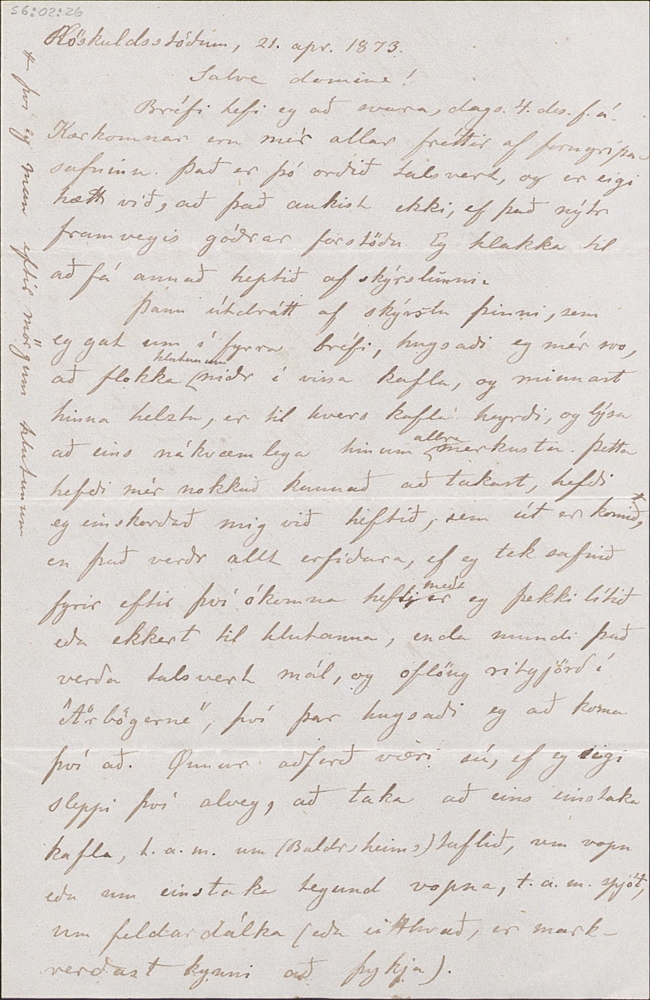 56:02:26
Höskuldsstöðum, 21. apr. 1873.
Salve domine!
Bréfi hefi eg að svara, dags. 4. des. f. á.
Kærkomnar eru mér allar fréttir af forngripa-
safninu. Það er þó orðið talsvert, og er eigi
hætt við, að það aukist ekki, ef það nýtr
framvegis góðrar forstöðu. Eg hlakka til
að fá annað heptið af skýrslunni.
Þann útdrátt af skýrslu þinni, sem
eg gat um í fyrra bréfi, hugsaði eg mér svo,
að flokka hlutunum niðr í vissa kafla, og minnast
hinna helztu, er til hvers kafla heyrði, og lýsa
að eins nákvæmlega hinum allra merkustu. Þetta
hefði mér nokkuð kunnað að takast, hefði
eg einskorðað mig við heftið, sem út er komið, +
en það verðr allt erfiðara, ef eg tek safnið
fyrir eftir því ókomna hefti, er með eg þekki lítið
eða ekkert til hlutanna, enda mundi það
verða talsvert mál, og oflöng ritgjörð í
"Aarbögerne", því þar hugsaði eg að koma
því að. Önnur aðferð væri sú, ef eg eigi
sleppi því alveg, að taka að eins einstaka
kafla, t. a. m. um (Baldrsheims) taflið, um vopn
eða um einstaka tegund vopna, t. a. m. spjót,
um feldardálka (eða eitthvað, er mark-
verðast kynni að þykja).
+ því eg man eftir mörgum hlutunum